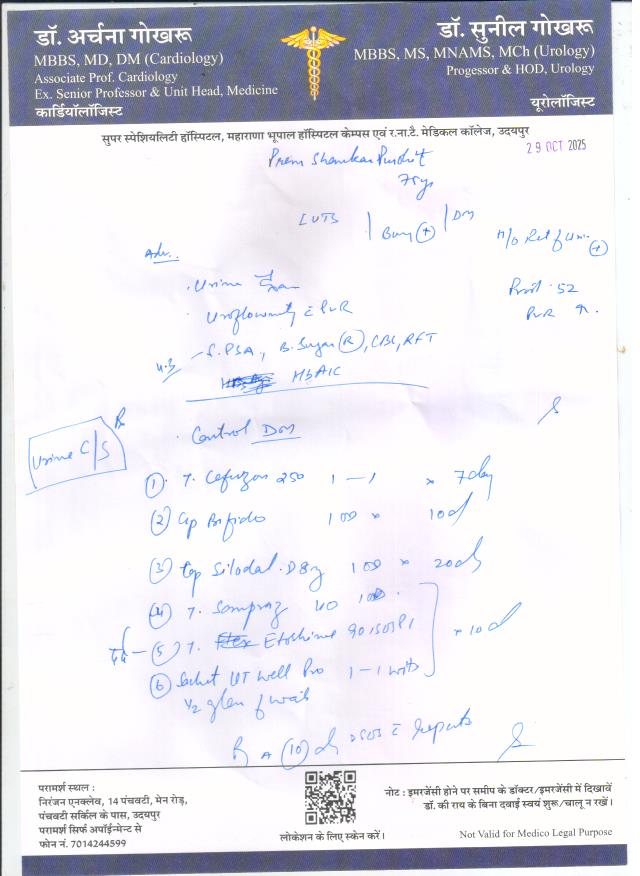 डॉ. अर्चना गोखरू
MBBS, MD, DM (Cardiology)
Associate Prof. Cardiology
Ex. Senior Professor & Unit Head, Medicine
कार्डियॉलॉजिस्ट
डॉ. सुनील गोखरू
MBBS, MS, MNAMS, MCh (Urology)
Progessor & HOD, Urology
यूरोलॉजिस्ट
सुपर स्पेशियलिटी हॉस्पिटल, महाराणा भूपाल हॉस्पिटल केम्पस एवं र.ना.टै. मेडिकल कॉलेज, उदयपुर
29 OCT 2025
Prem Shankar Purohit
75yr
LUTS | (+) | DM
H/O Ret of Urine (+)
Adv.
Urine
Uroflowmetry c PVR
Prost. 52
PVR ↑
S.PSA, B.Sugar (R), CBC, RFT
HbA1C
Urine C/S
Rx
Control DM
(1) T. 250 1-1 x 7day
(2) Cap Bifido 1 OD x 10d
(3) Cap Silodal.D8mg 1 OD x 20d
(4) T. Sompraz 40 1 OD
(5) T.
x 10d
(6) Sachet UT Well Pro 1-1 with
1/2 glass of water
R A (10) d c reports
परामर्श स्थल :
निरंजन एनक्लेव, 14 पंचवटी, मेन रोड़,
पंचवटी सर्किल के पास, उदयपुर
परामर्श सिर्फ अपॉईन्मेन्ट से
फोन नं. 7014244599
लोकेशन के लिए स्केन करें।
नोट : इमरजेंसी होने पर समीप के डॉक्टर/इमरजेंसी में दिखावें
डॉ. की राय के बिना दवाई स्वयं शुरू/चालू न रखें।
Not Valid for Medico Legal Purpose